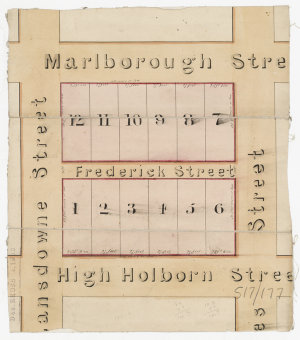 Marlborough Stre
12 11 10 9 8 7
Frederick Street
1 2 3 4 5 6
High Holborn Stree
ansdowne Street
Street
es
S17/177